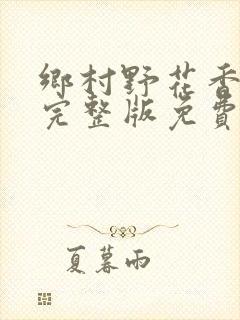 鄉村野花香
完整版免費
夏暮雨